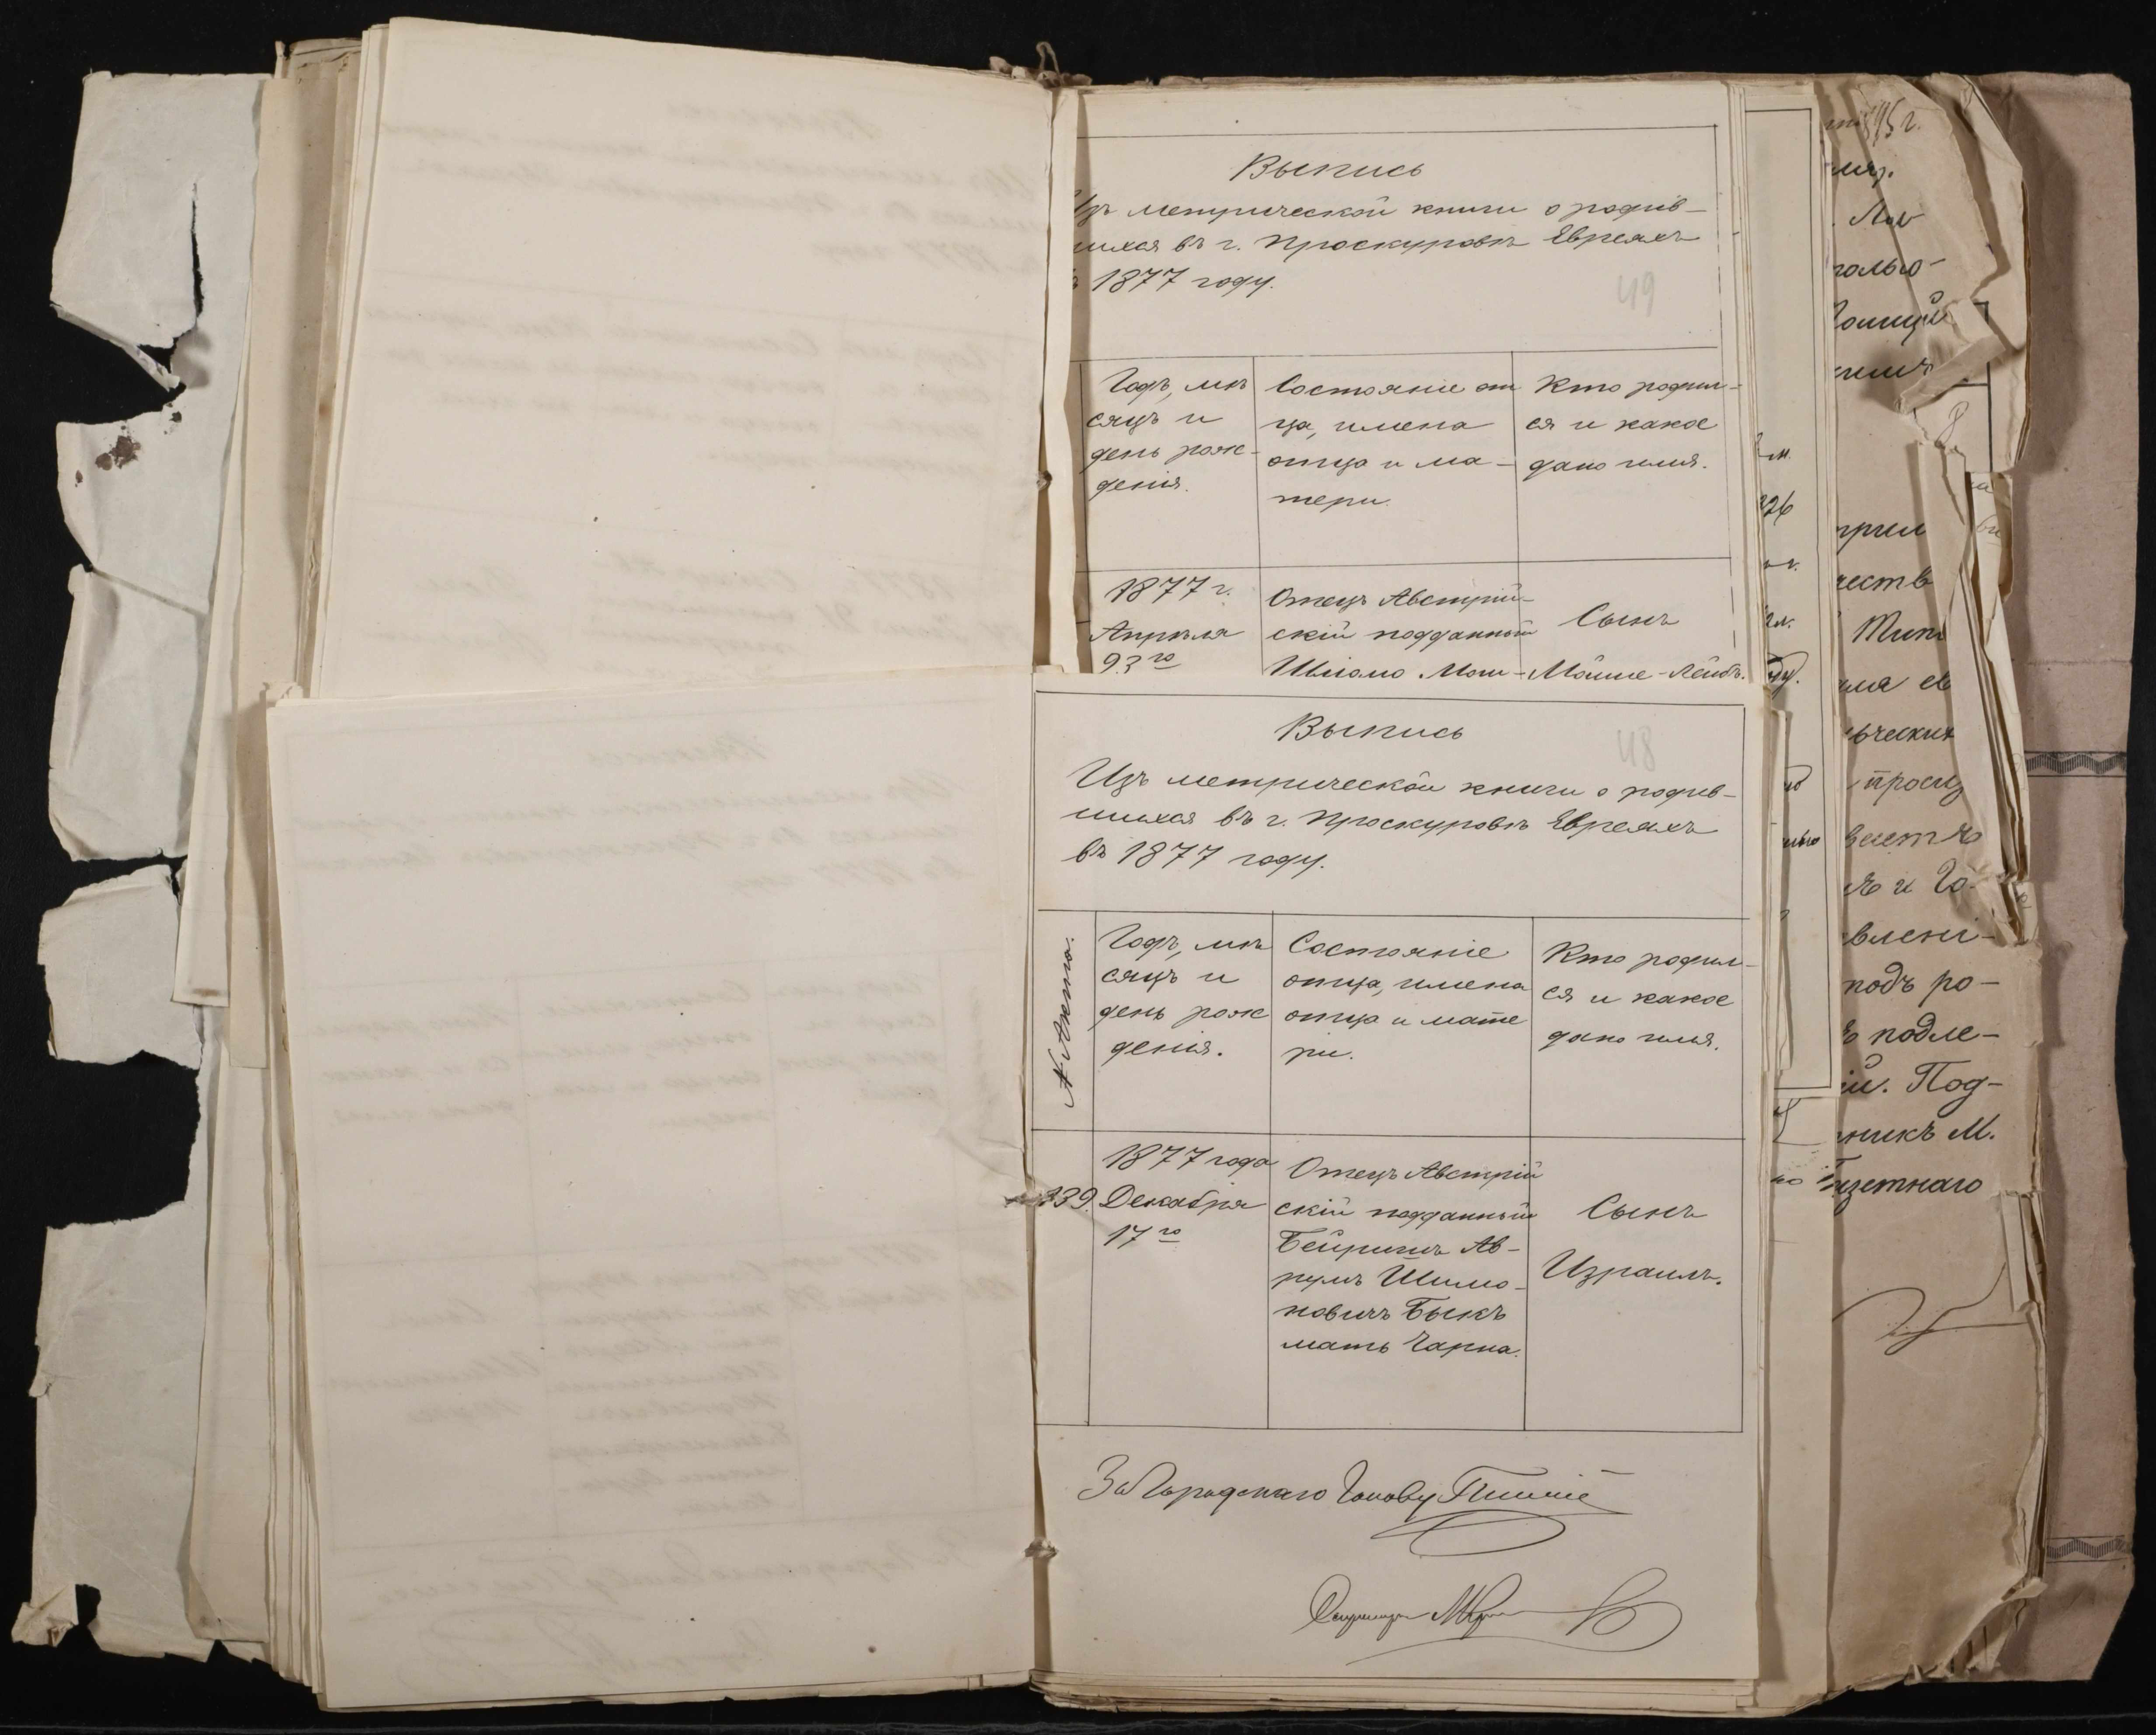 Выпись
Изъ метрической книги о родив-
шихся въ г. Проскуровѣ Евреяхъ
1877 году.
49
Годъ, мѣ
сяцъ и
день рож-
денія.
Состояніе от
ца, имена
отца и ма-
тери.
Кто родил-
ся и какое
дано имя.
1877 г.
Апрѣля
23го
Отецъ Австрій-
скій подданный
Шліомо Мош-
Сынъ
Мойше-Лейбъ.
Выпись
48
Изъ метрической книги о родив-
шихся въ г. Проскуровѣ Евреяхъ
въ 1877 году.
№ Акта.
Годъ, мѣ
сяцъ и
день рож
денія.
Состояніе
отца, имена
отца и мате
ри.
Кто родил-
ся и какое
дано имя.
339.
1877 года
Декабря
17го
Отецъ Австрій
скій подданный
Бейришъ Ав-
румъ Шимо-
новичъ Быкъ
мать Чарна.
Сынъ
Израиль.
За Городскаго Голову
подъ ро-
подле-
Под-
никъ М.